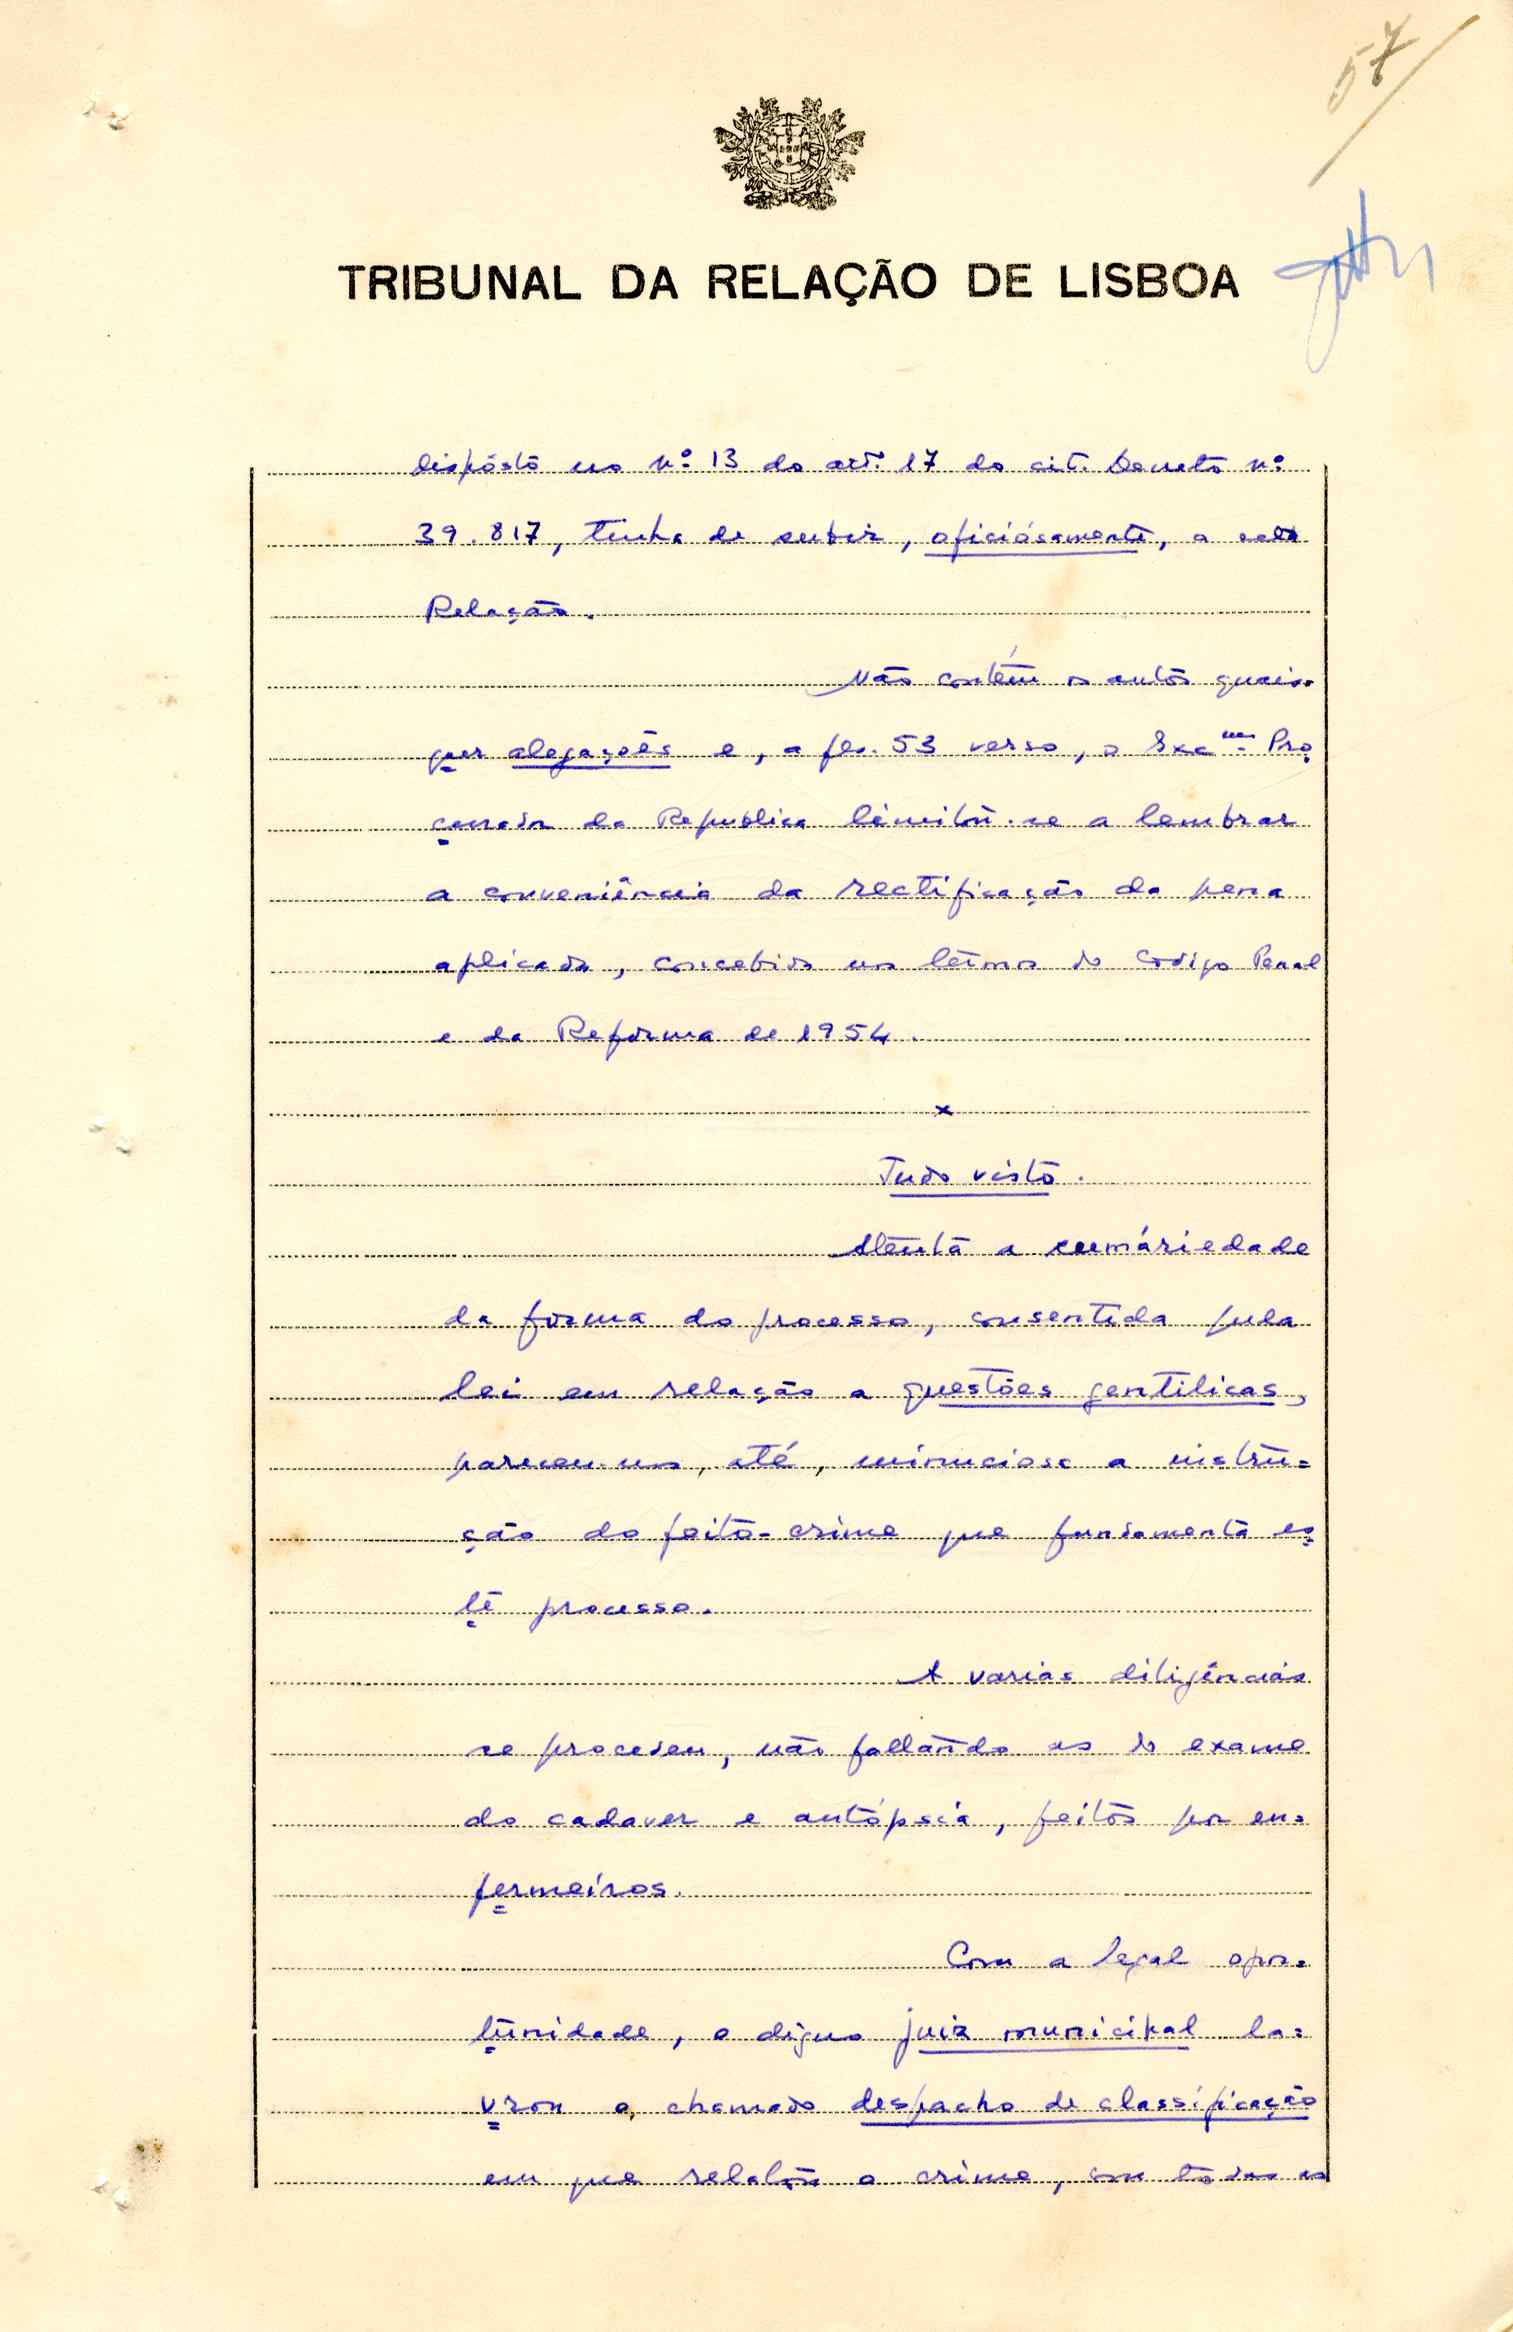 57
TRIBUNAL DA RELAÇÃO DE LISBOA
disposto no nº 13 do art. 17 do cit. Decreto nº
39.817, tinha de subir, oficiósamente, a esta
Relação.
Não contém os autos quais=
quer alegações e, a fls. 53 verso, o Exc.mo Pro=
curador da Republica limitou-se a lembrar
a conveniência da rectificação da pena
aplicada, concebida nos termos do Codigo Penal
e da Reforma de 1954.
x
Tudo visto.
Atenta a sumáriedade
da forma do processo, consentida pela
lei em relação a questões gentilicas,
pareceu-nos, até, minuciosa a instru=
ção do feito-crime que fundamenta es=
te processo.
A varias diligências
se procedeu, não faltando as do exame
do cadaver e autópsia, feitos por en=
fermeiros.
Com a legal opor=
tunidade, o digno juiz municipal la=
vrou o chamado despacho de classificação
em que relatou o crime, com todas as